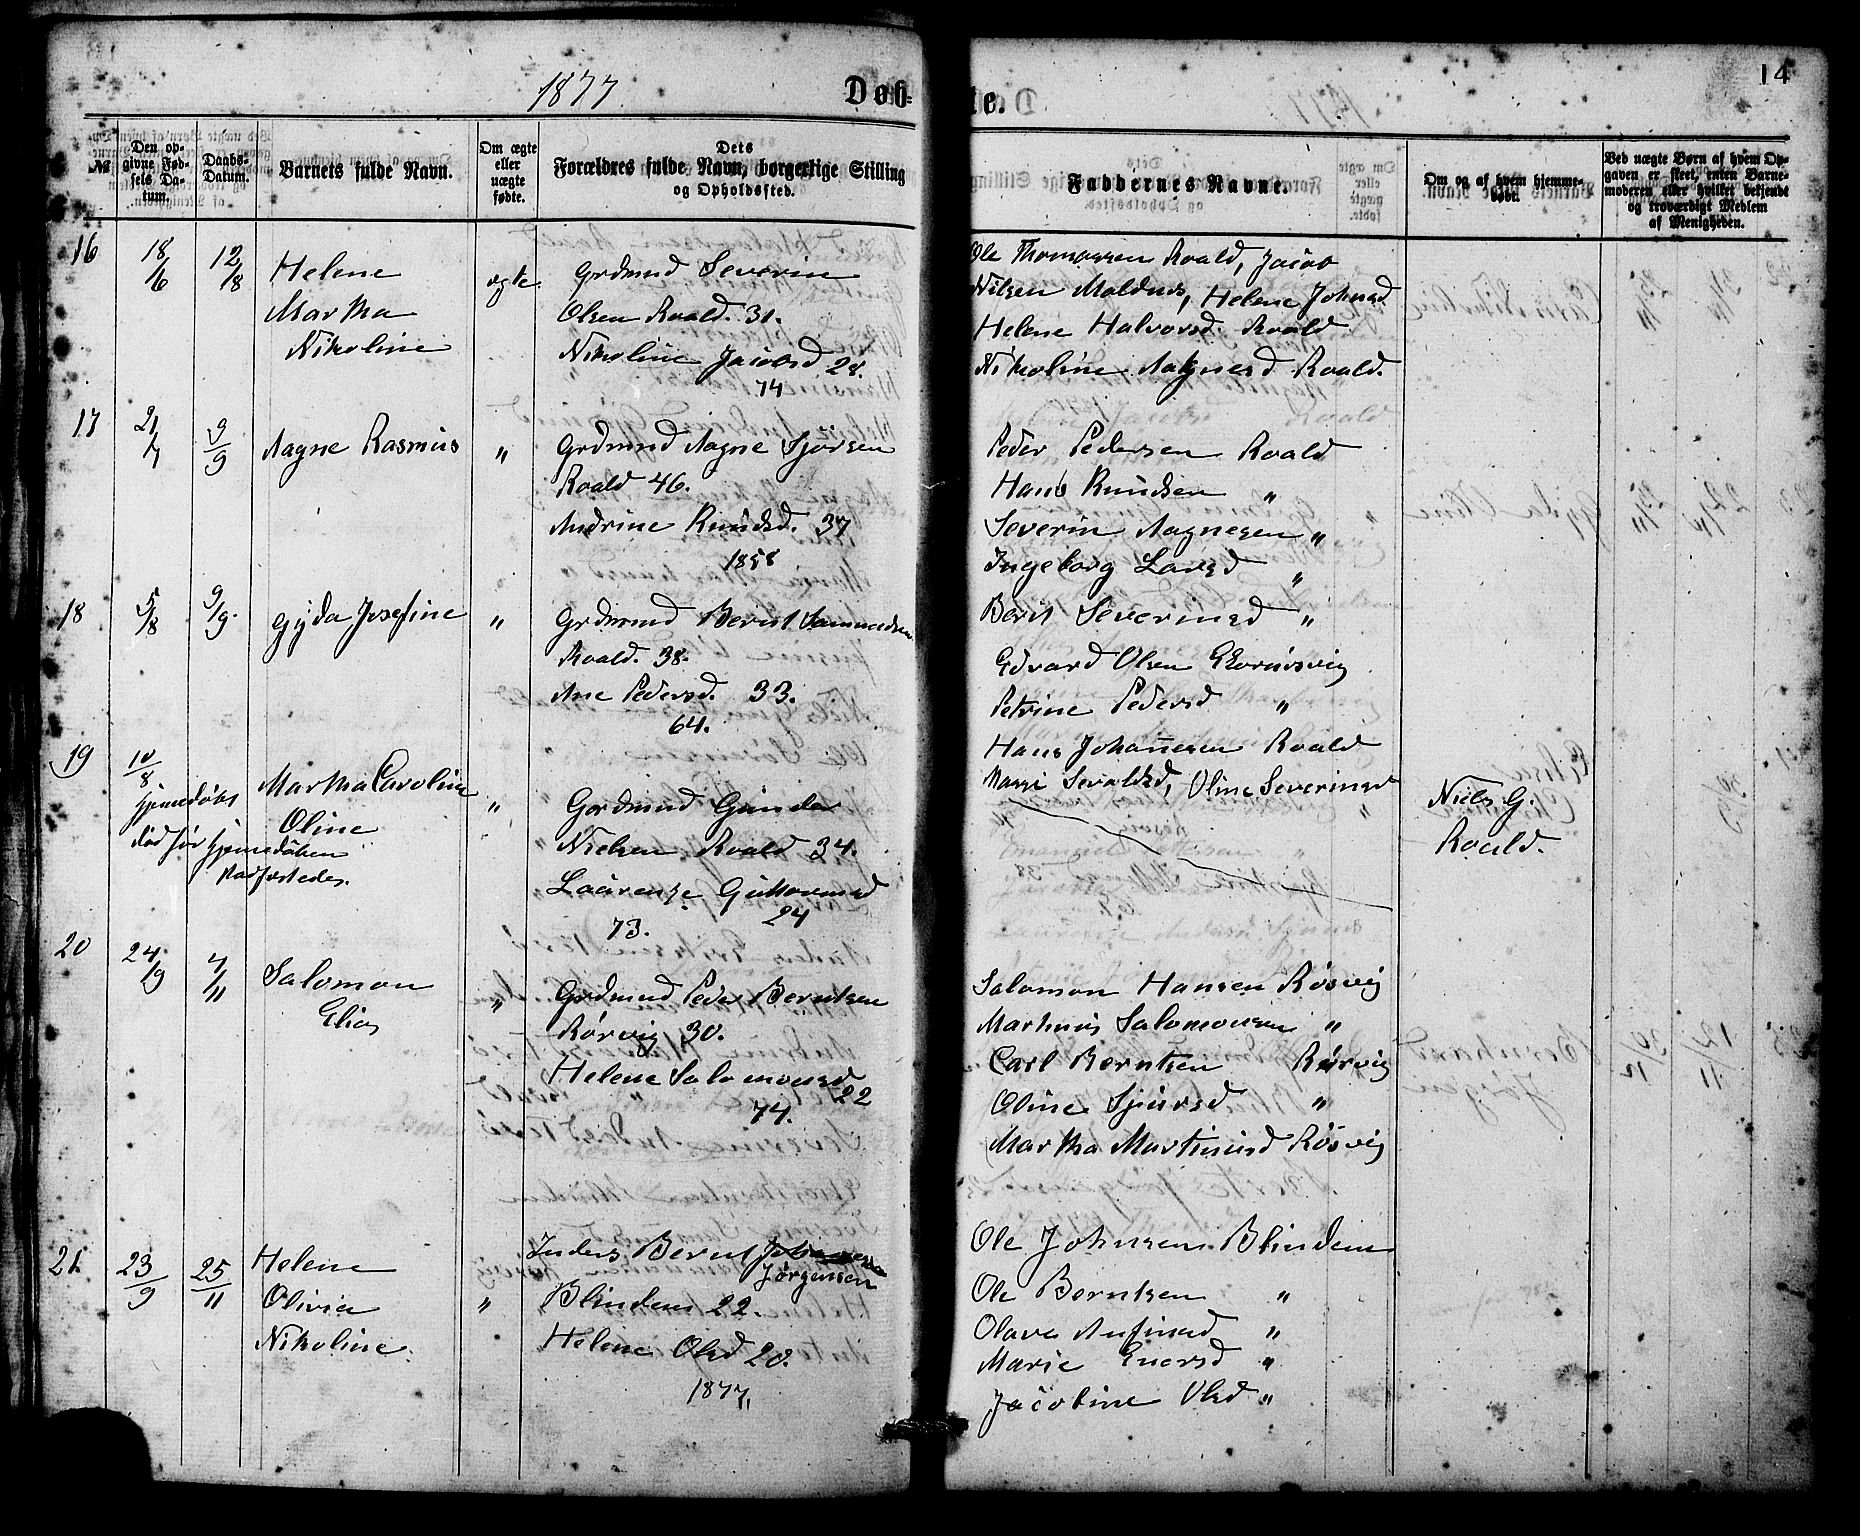 1877.
Døb-
te.
14
№
Den opgivne Fødsels Datum.
Daabs-Datum.
Barnets fulde Navn.
Om ægte eller uægte fødte.
Dets Forældres fulde Navn, borgerlige Stilling og Opholdssted.
Faddernes Navne.
Om og af hvem hjemmedøbt.
Ved uægte Børn af hvem Opgaven er skeet, enten Barnemoderen eller hvilket bekjendt og troværdigt Medlem af Menigheden.
16
18/6
12/8
Helene
Martha
Nikoline
ægte
Grdmnd Severin
Olsen Roald. 31.
Nikoline Jacobsd 28.
74
Ole Thomassen Roald, Jacob
Nilsen Moldnes, Helene Johnsd
Helene Halvorsd. Roald
Nikoline Aagnesd Roald.
17
21/7
9/9
Aagne Rasmus
"
Grdmnd Aagne Sjørsen
Roald 46.
Andrine Knudsd. 37
1858
Peder Pedersen Roald
Hans Knudsen "
Severin Aagnesen "
Ingeborg Larsd "
18
5/8
9/9.
Gyda Josefine
"
Grdmnd Bernt
Roald. 38.
Ane Pedersd. 33.
64.
Berit Severinsd "
Edvard Olsen
Petrine Pedersd "
Hans Johannesen Roald
Sevaldsd, Oline Severinsd "
19
10/8
Hjemedøbt
død før Hjemedåben
stadfæstedes.
Martha Caroline
Oline
"
Gardmnd Gunder
Nielsen Roald 34.
Laurense Guttormsd
24
73.
Niels G.
Roald.
20
24/9
4/11
Salomon
Elias
"
Grdmnd Peder Berntsen
Rørvig 30.
Helene Salomonsd
22
74.
Salomon Hansen Røsvig
Martinus Salomonsen "
Carl Berntsen Rørvig
Oline Sjursd "
Martha Martinusd Røsvig
21.
23/9
25/11
Helene
Olivia
Nikoline.
"
Inders Bernt
Jørgensen
Blindem 22.
Helene Olsd 20.
1877.
Ole Johnsen Blindem
Ole Berntsen "
Olave "
Marie "
Jacobine Olsd "